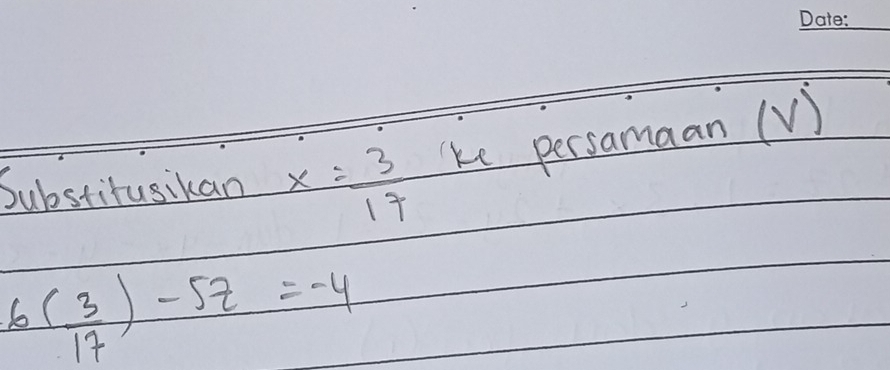 Date:
Substitusikan x = 3/17 ke persamaan (V)
6(3/17) - 5z = -4